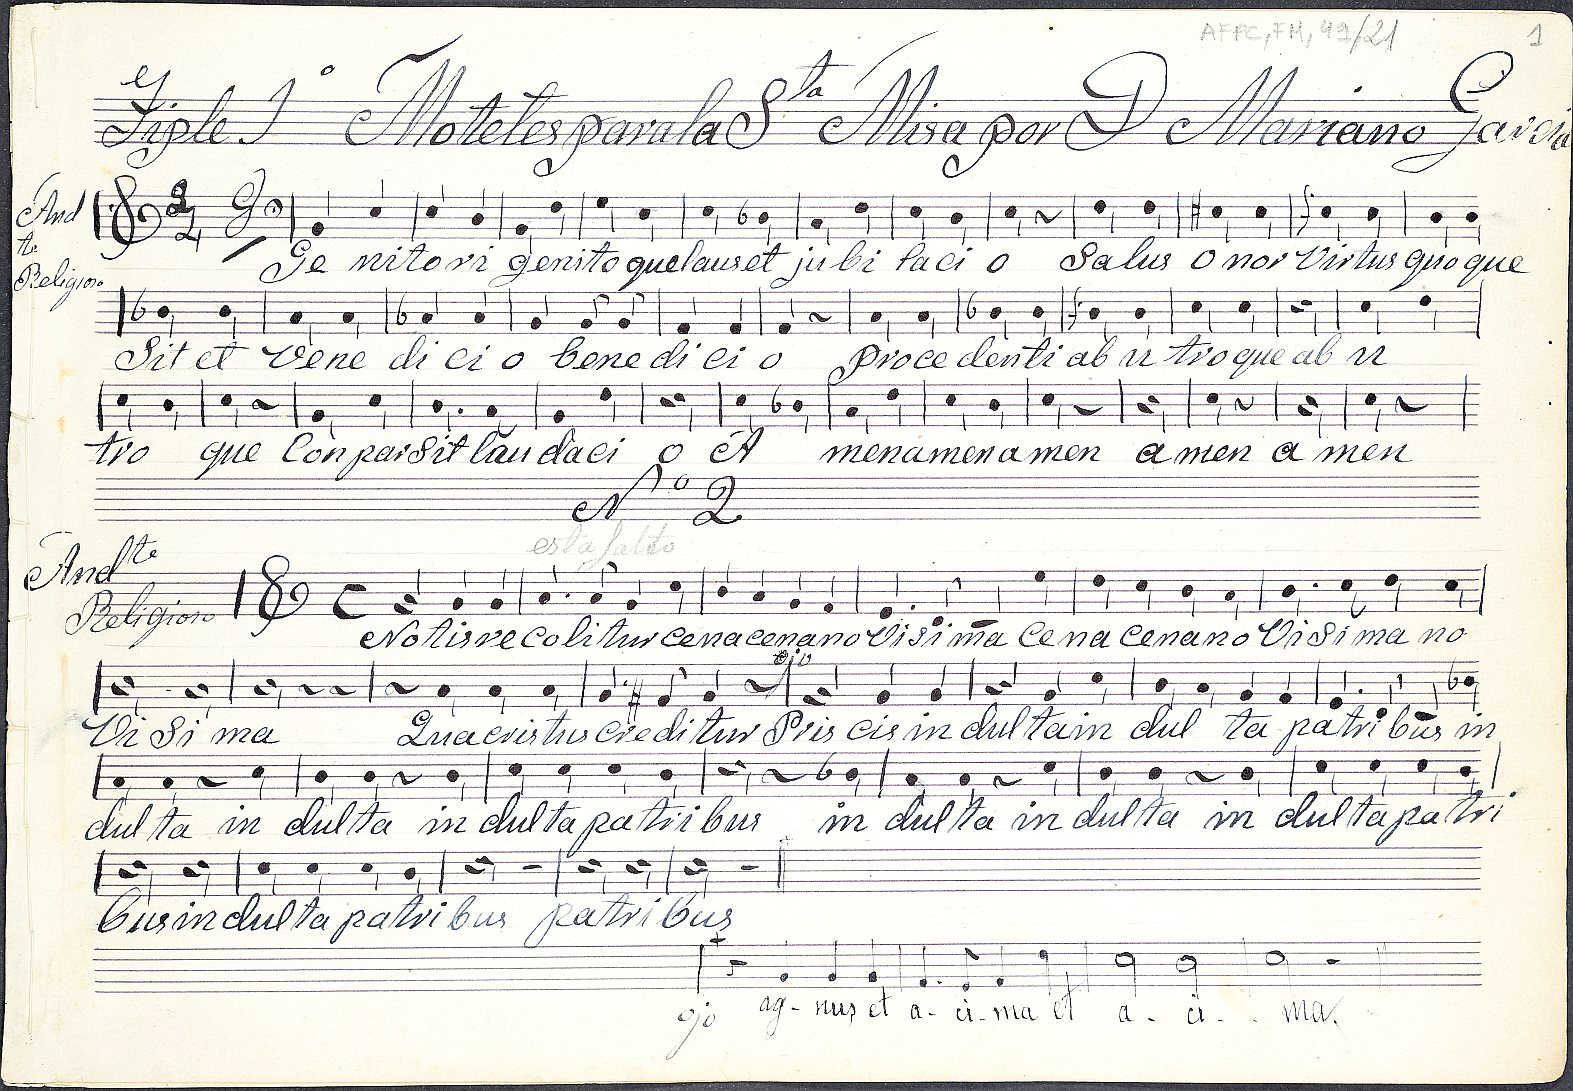 AFPC, FM, 49/21 1
Tiple 1º Motetes para la Sta Misa por D Mariano Garcia
Andte Religioso
Ge nitori genito que laus et jubi laci o Salus O nor Virtus quo que
Sit et Vene di ci o bene di ci o Proce denti ab u tro que ab u
tro que Con par Sit lau daci o A men amen a men a men a men
Nº 2
esta falto
Andte Religioso
Noti s re colitur cena cena no Visi ma Ce na cena no Vi Si ma no
ojo
Vi Si ma Qua cristus creditur Pris cis in dulta in dul ta patri bus in
dul ta in dul ta in dul ta patri bus in dul ta in dul ta in dul ta pa tri
bus in dul ta patri bus patri bus
ojo ag- nus et a- ci- ma et a- ci- ma.